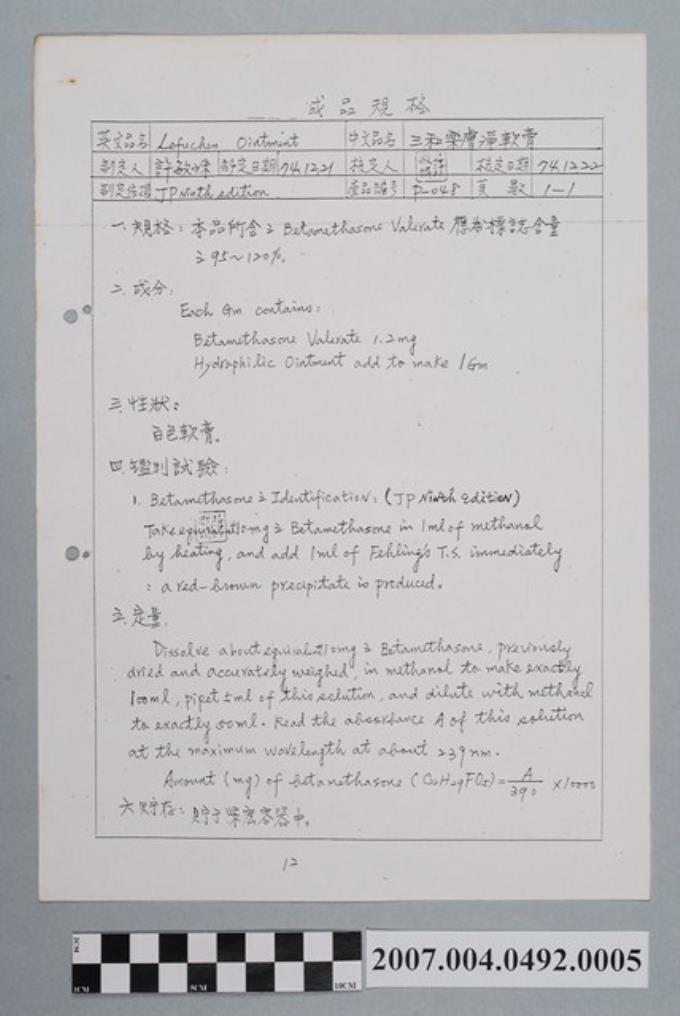 成品規格
英文品名 Lefuchen Ointment 中文品名 三和樂膚淨軟膏
制定人 許敏 制定日期 74.12.21 核定人 核定日期 74.12.22
制定依據 JP Ninth edition 產品編號 P-048 頁數 1-1
一. 規格: 本品所含之 Betamethasone Valerate 應為標誌含量
之 95~120%。
二. 成分:
Each Gm contains:
Betamethasone Valerate 1.2mg
Hydrophilic Ointment add to make 1Gm
三. 性狀:
白色軟膏。
四. 鑑別試驗:
1. Betamethasone之Identification: (JP Ninth edition)
Take equivalent 10mg 之 Betamethasone in 1ml of methanol
by heating, and add 1ml of Fehling's T.S. immediately
: a red-brown precipitate is produced.
五. 定量.
Dissolve about equivalent 10mg 之 Betamethasone, previously
dried and accurately weighed, in methanol to make exactly
100ml, pipet 5ml of this solution, and dilute with methanol
to exactly 50ml. Read the absorbance A of this solution
at the maximum wavelength at about 239nm.
Amount (mg) of betamethasone (C22H29FO5) = A/390 ×10000
六. 貯存: 貯于緊密容器中。
12
2CM
1CM 5CM 10CM
2007.004.0492.0005